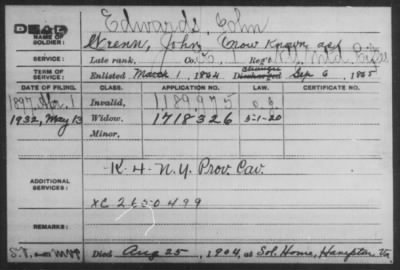 DEAD Edwards, John
NAME OF SOLDIER: Wrenn, John (now known as)
SERVICE: Late rank, Co. Reg't
TERM OF SERVICE: Enlisted March 1, 1864 Discharged Sep 6, 1865
DATE OF FILING. CLASS. APPLICATION NO. LAW. CERTIFICATE NO.
1897, 1 Invalid, 1189975
1932, May 13 Widow, 1718326 5-1-20
Minor,
ADDITIONAL SERVICES: K-4-N.Y. Prov. Cav.
XC 2650499
REMARKS:
Died Aug 25, 1904, at Sol. Home, Hampton, Va